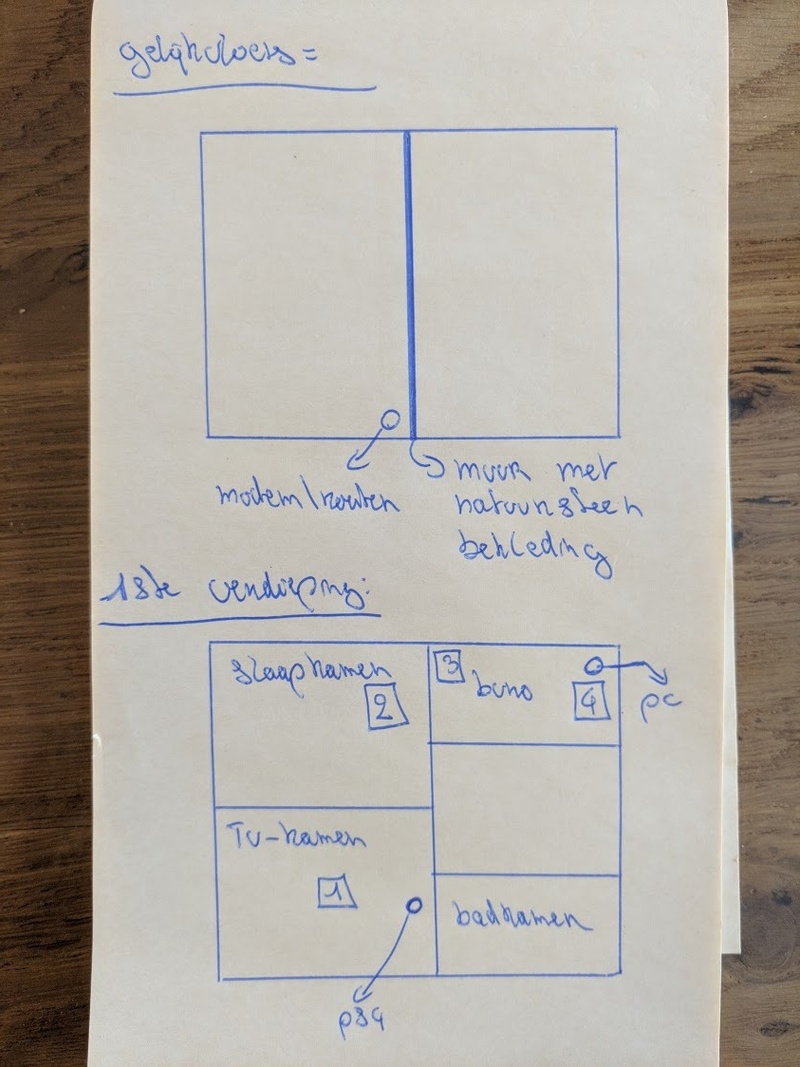 gelijkvloers =
modem/router
muur met
natuursteen
bekleding
1ste verdieping:
slaapkamer
2
3
buro
4
pc
TV-kamer
1
badkamer
ps4